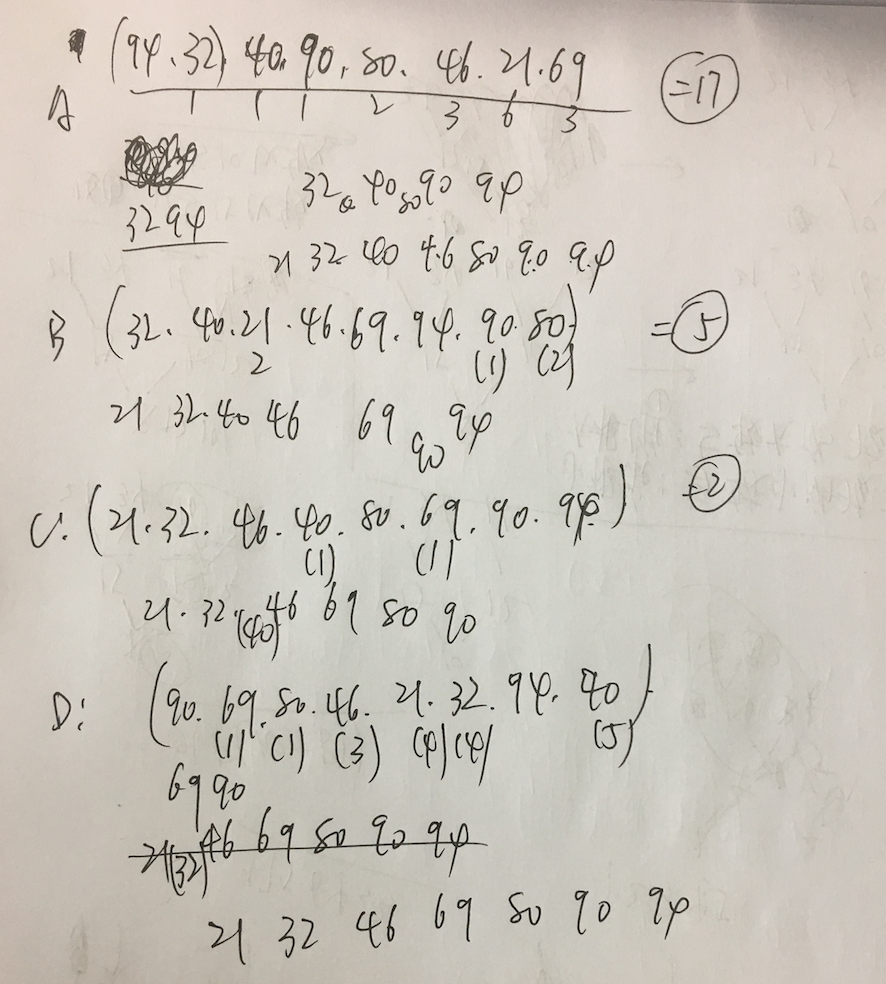 (94.32) 40. 90. 80. 46. 21. 69 =17
A 1 1 1 2 3 6 3
32 40 80 90 94
32 94
21 32 40 46 80 90 94
B (32. 40. 21. 46. 69. 94. 90. 80) =5
2 (1) (2)
21 32. 40 46 69 90 94
C. (21. 32. 46. 40. 80. 69. 90. 94) =2
(1) (1)
21. 32 (40) 46 69 80 90
D: (90. 69. 80. 46. 21. 32. 94. 40)
(1) (1) (3) (4) (4) (5)
69 90
21 (32) 46 69 80 90 94
21 32 46 69 80 90 94